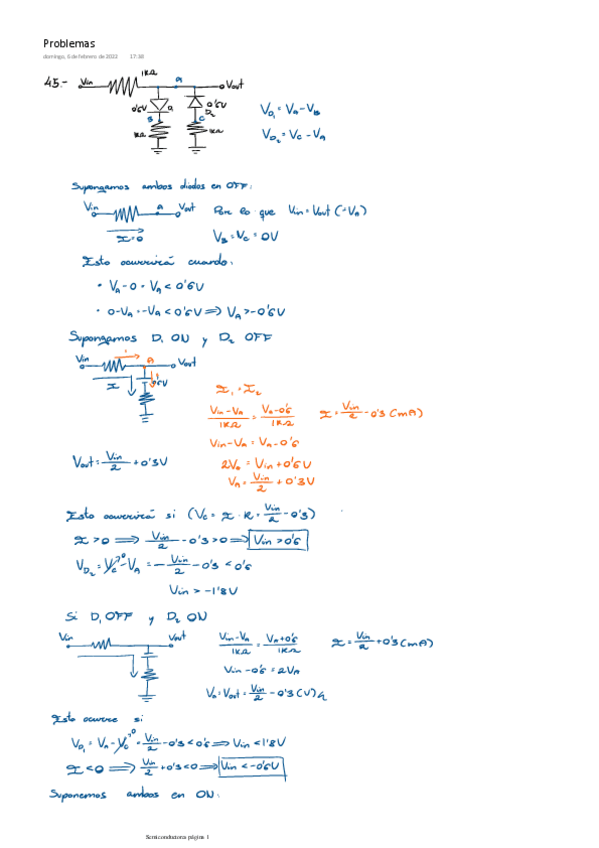 Problemas
domingo, 6 de febrero de 2022 17:30
45.- Vin 1kΩ A Vout
0'6V D1 0'6V D2
B C
1kΩ 1kΩ
VD1 = VA - VB
VD2 = VC - VA
Supongamos ambos diodos en OFF:
Vin A Vout Por lo que Vin = Vout (=VA)
I=0 VB = VC = 0V
Esto ocurrirá cuando:
• VA - 0 = VA < 0'6V
• 0 - VA = -VA < 0'6V ⟹ VA > -0'6V
Supongamos D1 ON y D2 OFF
Vin A Vout
I 0'6V
I1 = I2
(Vin - VA)/1kΩ = (VA - 0'6)/1kΩ I = Vin/2 - 0'3 (mA)
Vin - VA = VA - 0'6
Vout = Vin/2 + 0'3V
2VA = Vin + 0'6V
VA = Vin/2 + 0'3V
Esto ocurrirá si (VC = I·R = Vin/2 - 0'3)
I > 0 ⟹ Vin/2 - 0'3 > 0 ⟹ Vin > 0'6
VD2 = VC - VA = - Vin/2 - 0'3 < 0'6
Vin > -1'8V
Si D1 OFF y D2 ON
Vin Vout
(Vin - VA)/1kΩ = (VA + 0'6)/1kΩ I = Vin/2 + 0'3 (mA)
Vin - 0'6 = 2VA
VA = Vout = Vin/2 - 0'3 (V)
Esto ocurre si
VD1 = VA - VC = Vin/2 - 0'3 < 0'6 ⟹ Vin < 1'8V
I < 0 ⟹ Vin/2 + 0'3 < 0 ⟹ Vin < -0'6V
Suponemos ambos en ON:
Semiconductores página 1